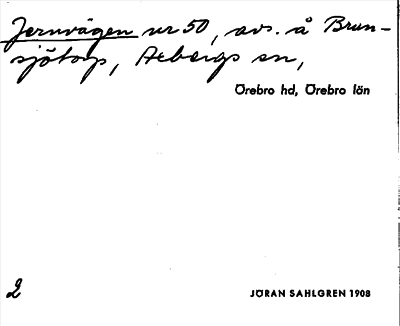 Jernvägen nr 50, avs. å Brun-
sjötorp, Axbergs sn,
Örebro hd, Örebro län
2
JÖRAN SAHLGREN 1908